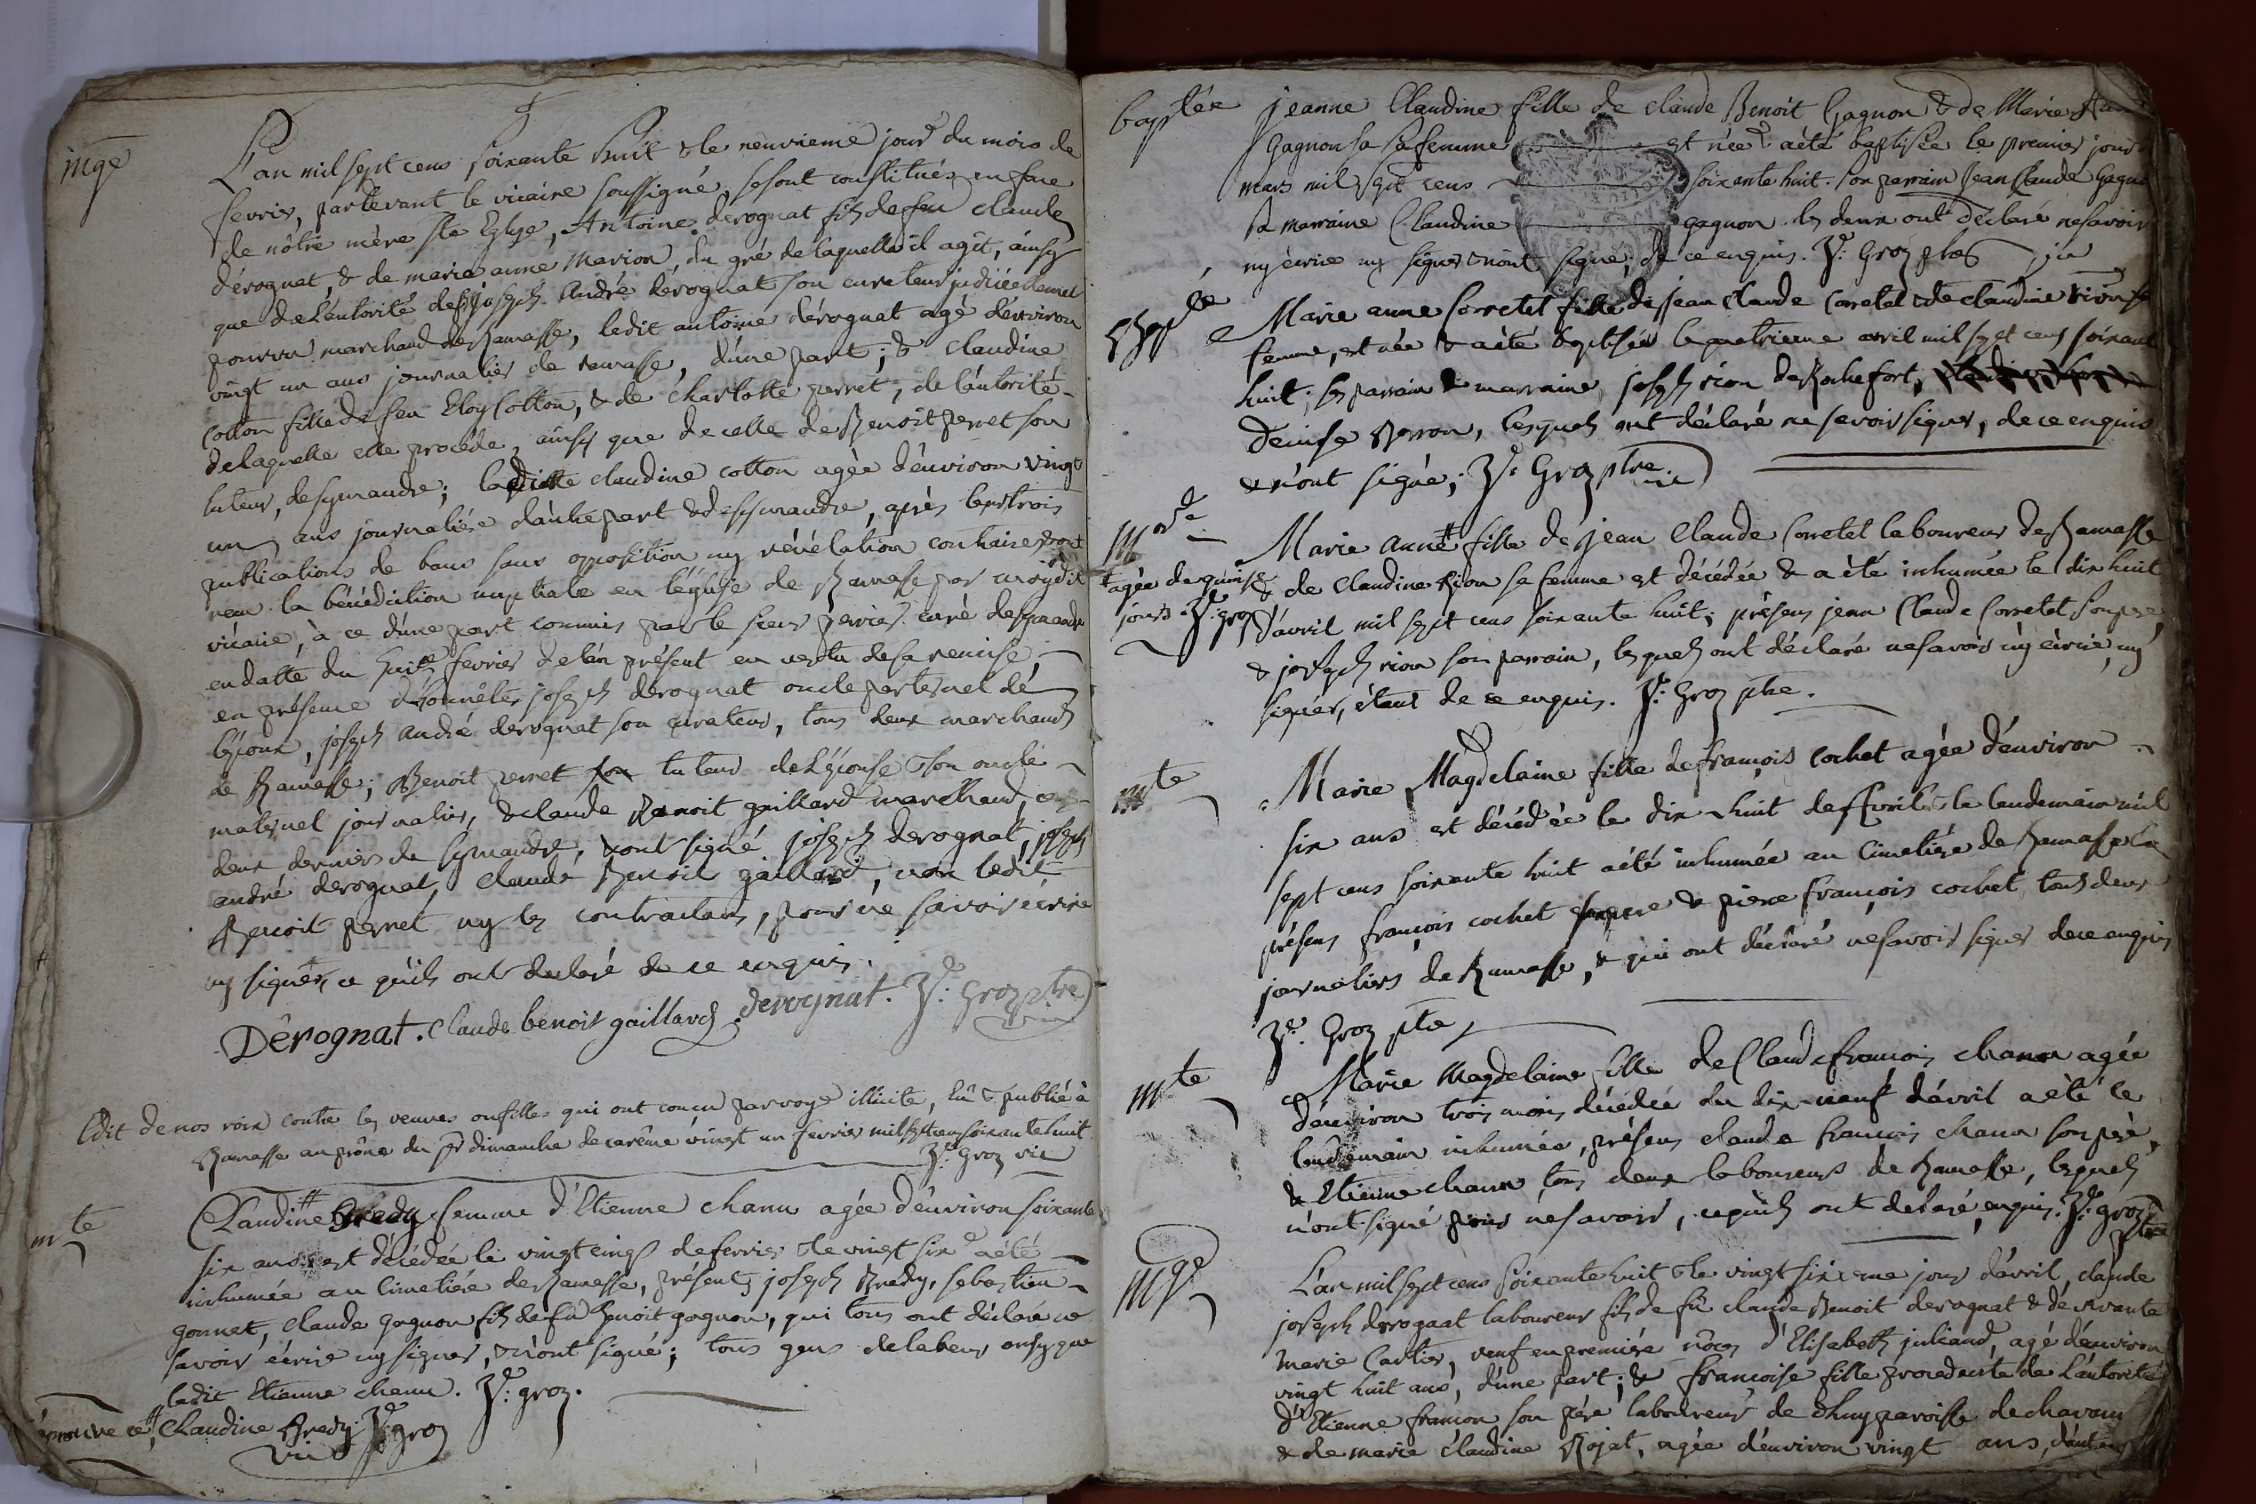 mge
L'an mil sept cens soixante huit & le neuvieme jour du mois de
fevrier, pardevant le vicaire soussigné, se sont constitués en face
de nôtre mère ste Eglise, Antoine derognat fils de feu Claude
dérognat, & de marie anne Marion, du gré de laquelle il agit, ainsy
que de l'autorité de Joseph André derognat son curateur judiciellement
pourvu marchand de Ramasse, ledit antoine dérognat agé d'environ
vingt un ans journalier de ramasse, d'une part; & Claudine
Cotton fille de feu Eloy Cotton, & de Charlotte perret, de l'autorité
de laquelle elle procède, ainsy que de celle de Benoit perret son
tuteur, de symandre; laditte claudine cotton agée d'environ vingt
un ans journalière d'autre part & de symandre, après les trois
publications de bans sans opposition ny révélation contraire, ont
reçu la bénédiction nuptiale en l'église de Ramasse par moydit
vicaire, à ce d'une part commis par le sieur perrier curé de symandre
en datte du huit fevrier de l'an présent en vertu de sa remise,
en présence d'honnêtes joseph derognat oncle paternel de
l'époux, joseph andré derognat son curateur, tous deux marchands
de Ramasse; Benoit perret tuteur de l'épouse & son oncle
maternel journalier, & claude Benoit gaillard marchand, ces
deux derniers de symandre, & ont signé joseph derognat, joseph
andré derognat, claude Benoit gaillard, non ledit
Benoit perret ny les contractans, pour ne savoir écrire
ny signer, ce qu'ils ont declaré de ce enquis.
Dêrognat. Claude benoit gaillard. derognat. Je. Groz ptre
Edit de nos rois contre les veuves ou filles qui ont concu par voye illicite, lû & publié à
Ramasse au prône du pr dimanche de carême vingt un fevrier mil sept cens soixante huit
Je Groz vic
mte
Claudine Bredy femme d'Etienne chanu agée d'environ soixante
six ans est décédée le vingt cinq de fevrier & le vingt six a été
inhumée au cimetière de Ramasse, présents joseph Bredy, sebastien
gonnet, claude gagnon fils de fû Benoit gagnon, qui tous ont déclaré ne
savoir écrire ny signer, & n'ont signé; tous gens de labeur ainsy que
ledit Etienne chanu. Je. groz.
aprouve ce, Claudine Bredy. Je groz
vic
baptée
jeanne Claudine fille de claude Benoit Gagnon & de Marie
Gagnon sa femme est née & a été baptisée le premier jour
mars mil sept cens soixante huit. son parrain Jean Claude Gagnon
sa marraine Claudine gagnon les deux ont déclaré ne savoir
ny écrire ny signer & n'ont signé, de ce enquis. Je. Groz ptre
Marie anne Corretel fille de jean claude Corretel & de claudine rion sa
femme, est née & a été baptisée le quatrieme avril mil sept cens soixante
huit; ses parrain & marraine, joseph rion de Rochefort,
denise Berron, lesquels ont déclaré ne savoir signer, de ce enquis
& n'ont signé; Je. Groz ptre
Morte
Marie anne fille de jean Claude Corretel laboureur de Ramasse
agée de quinze
jours. Je. groz
& de Claudine Rion sa femme est décédée & a été inhumée le dix huit
d'avril mil sept cens soixante huit; présens jean Claude Corretel son pere,
& joseph rion son parrain, lesquels ont déclaré ne savoir ny écrire, ny
signer, étant de ce enquis. Je. Groz ptre.
mte
Marie Magdelaine fille de françois cochet agée d'environ
six ans est décédée le dix huit d'avril & le lendemain mil
sept cens soixante huit a été inhumée au cimetière de Ramasse
présens françois cochet son pere & pierre françois cochet tous deux
journaliers de Ramasse, & qui ont déclaré ne savoir signer de ce enquis
Je. Groz ptre
mte
Marie Magdelaine fille de Claude francois chanu agée
d'environ trois mois décédée du dix neuf d'avril a été le
lendemain inhumée, présens claude francois chanu son père,
& Etienne chanu tous deux laboureurs de Ramasse, lesquels
n'ont signé pour ne savoir, ce qu'ils ont déclaré, enquis. Je. groz
ptre
Mge
L'an mil sept cens soixante huit & le vingt sixieme jour d'avril, claude
joseph derognat laboureur fils de fû claude Benoit derognat & de vivante
Marie Cartier, veuf en première nôces d'Elisabeth juliand, agé d'environ
vingt huit ans, d'une part; & francoise fille procedante de l'autorité
d'Etienne francon son père laboureur de dhuy paroisse de chavan
& de marie claudine Rojat, agée d'environ vingt ans, d'autre